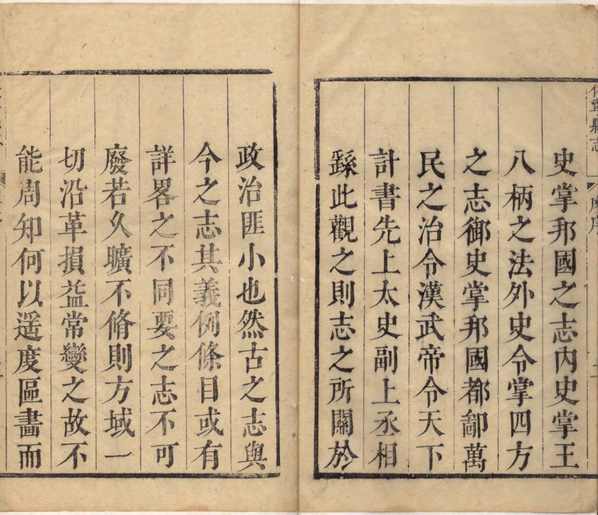 史掌邦國之志內史掌王
八柄之法外史令掌四方
之志御史掌邦國都鄙萬
民之治令漢武帝令天下
計書先上太史副上丞相
繇此觀之則志之所關於
政治匪小也然古之志與
今之志其義例條目或有
詳畧之不同要之志不可
廢若久曠不脩則方域一
切沿革損益常變之故不
能周知何以遥度區畫而